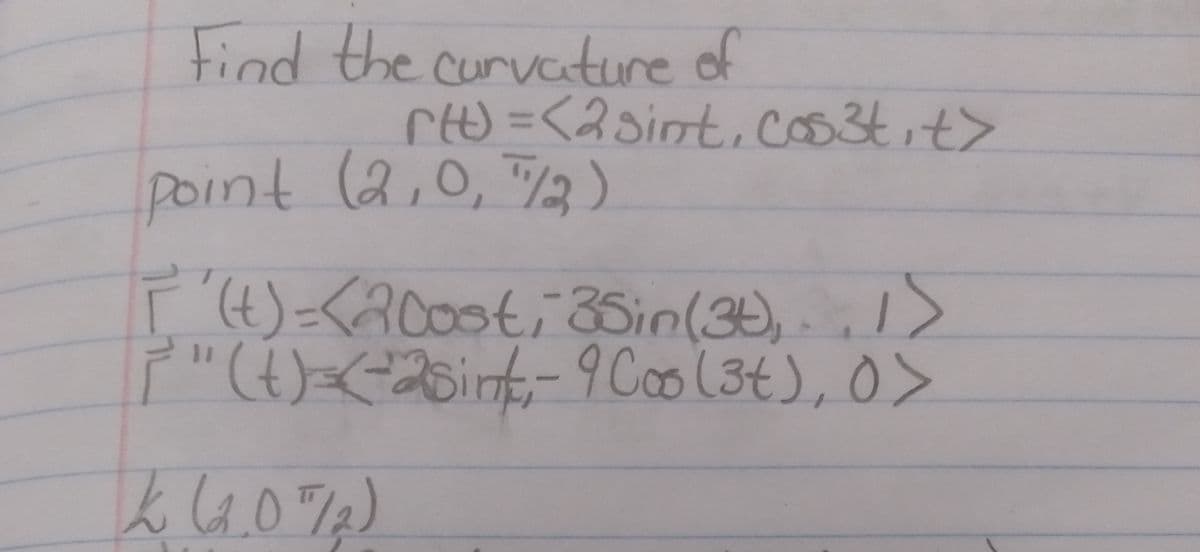 Find the curvature of
r(t) = <2sint, cos3t, t>
point (2, 0, π/2)
r⃗'(t) = <2Cost, -3Sin(3t), 1>
r⃗''(t) = <-2sint, -9Cos(3t), 0>
k (2,0 π/2)